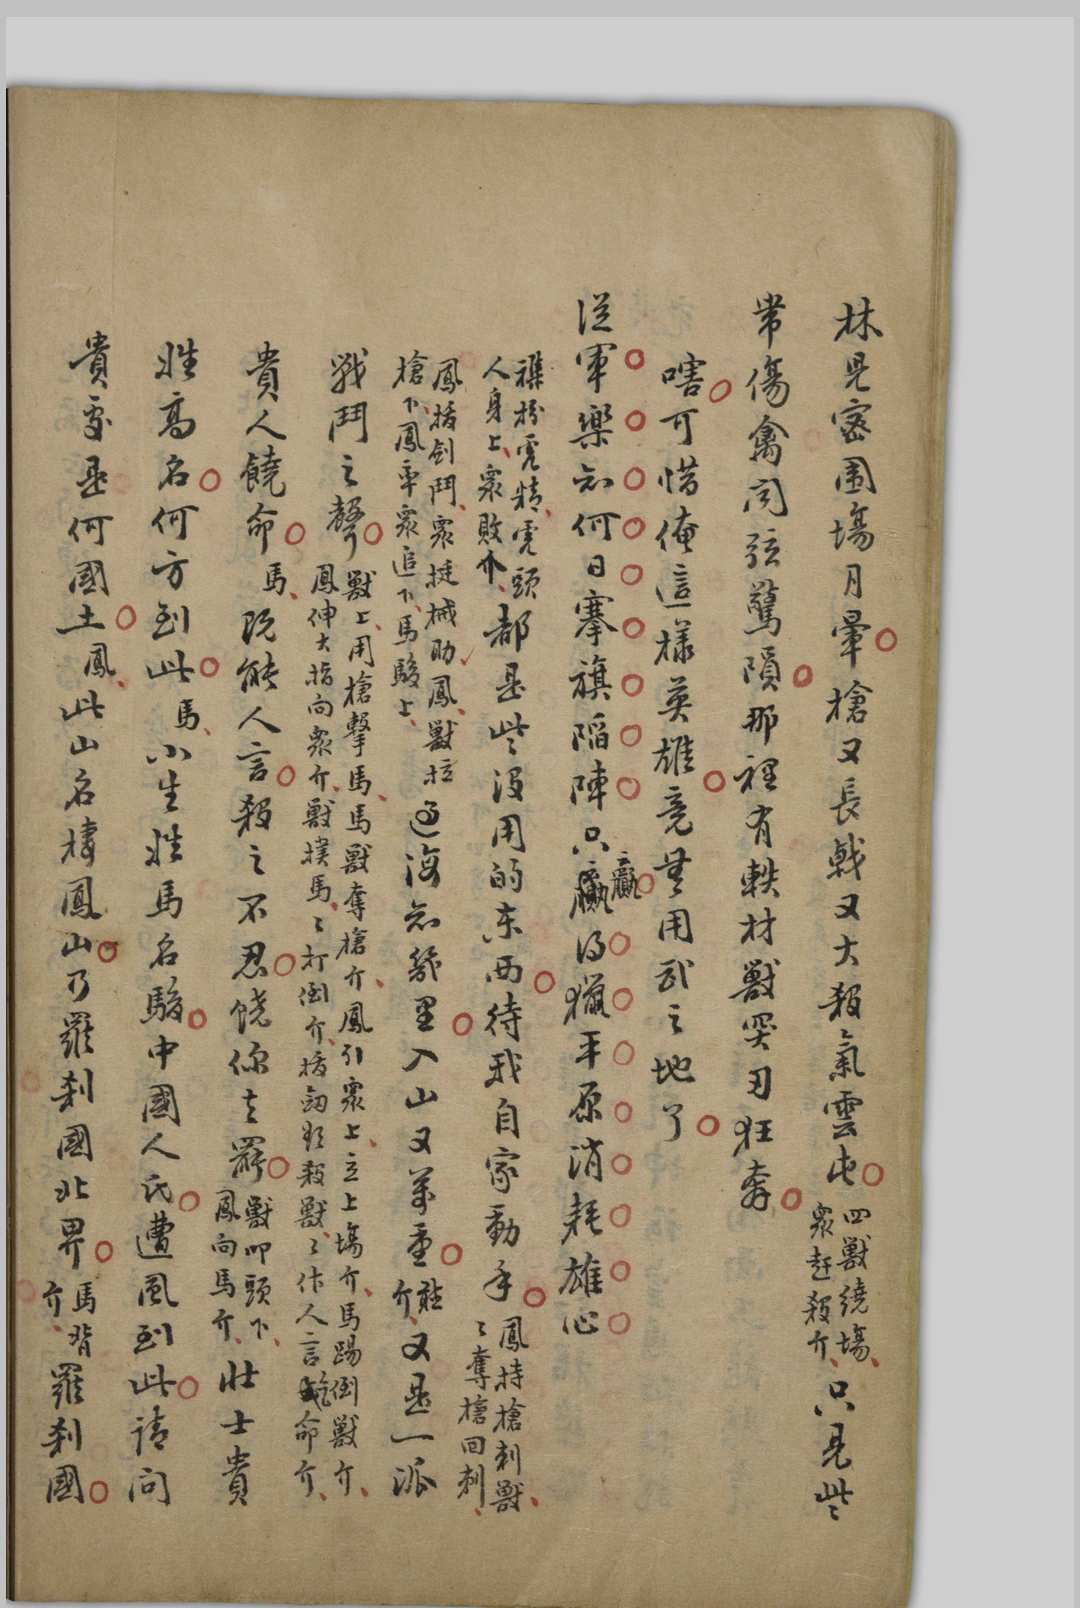 林見密圍塲月暈槍又長戟又大殺氣雲屯四獸繞塲、衆赶殺介、只見些
常傷禽聞弦驚隕那裡有軼材獸突刃狂奔
喀可惜俺這樣英雄竟無用武之地了
從軍樂知何日搴旗陷陣只贏得獵平原消耗雄心
雜扮虎精、虎頭人身上、衆敗介、都是些沒用的东西待我自家動手鳳持槍刺獸、ミ奪槍回刺、
鳳拔劍鬥、衆挺械助鳳、獸拉槍下、鳳率衆追下、馬駿上、過海知幾里入山又萬重介、又是一派
戰鬥之聲獸上、用槍擊馬、馬獸奪槍介、鳳引衆上、立上塲介、馬踢倒獸介、鳳伸大指向衆介、獸撲馬、ミ打倒介、拔劍欲殺獸、ミ作人言饒命介、
貴人饒命馬、既能人言殺之不忍饒你去罷獸叩頭下、鳳向馬介、壯士貴
姓高名何方到此馬、小生姓馬名駿中國人氏遭風到此請問
貴處是何國土鳳、此山名棲鳳山乃羅刹國北界馬背介、羅刹國